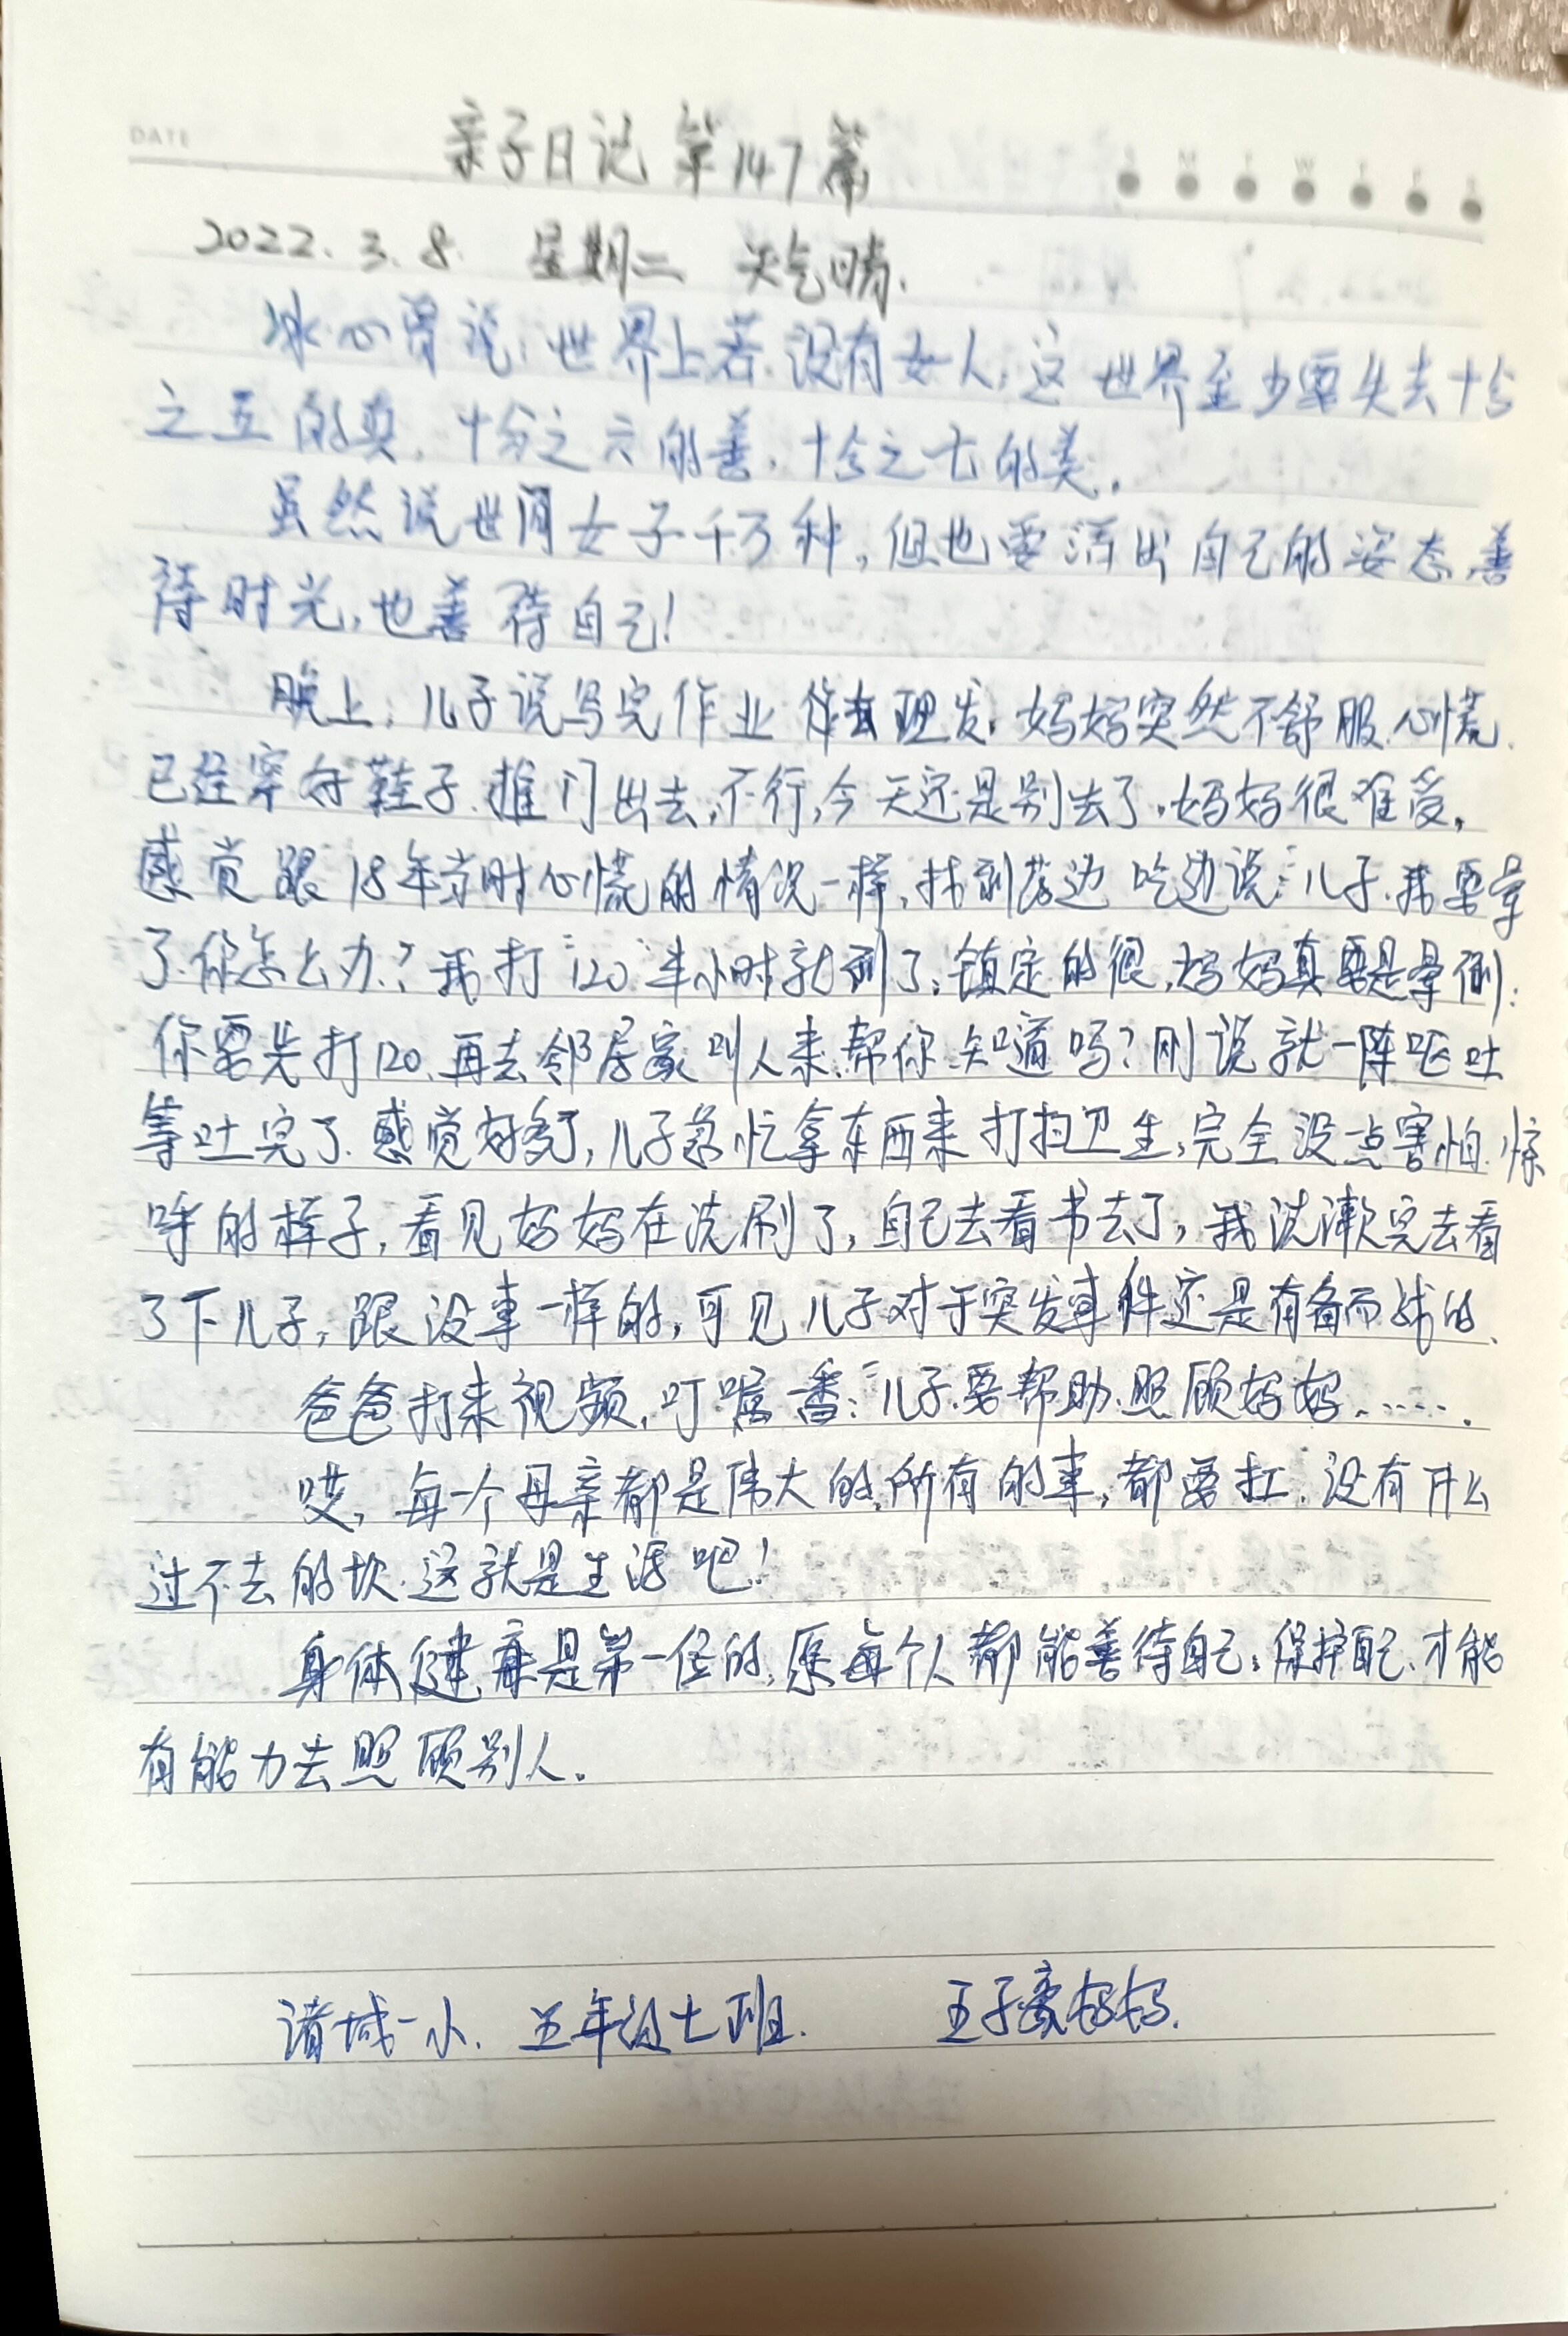 DATE
亲子日记 第147篇
S M T W T F S
2022.3.8. 星期二 天气晴.
冰心曾说:世界上若没有女人,这世界至少要失去十分
之五的真,十分之六的善,十分之七的美。
虽然说世间女子千万种,但也要活出自己的姿态,善
待时光,也善待自己!
晚上,儿子说写完作业 去理发,妈妈突然不舒服、心慌、
已经穿好鞋子、推门出去,不行,今天还是别去了,妈妈很难受,
感觉跟18年当时心慌的情况一样,找到药边吃边说:“儿子、我要晕
了、你怎么办?我打“120”半小时就到了,镇定的很,妈妈真要是晕倒,
你要先打120、再去邻居家叫人来帮你、知道吗?刚说就一阵呕吐
等吐完了、感觉好多了,儿子急忙拿东西来打扫卫生,完全没点害怕、惊
呼的样子,看见妈妈在洗刷了,自己去看书去了,我洗漱完去看
了下儿子,跟没事一样的,可见儿子对于突发事件还是有备而战的、
爸爸打来视频,叮嘱一番:“儿子、要帮助、照顾妈妈…….
哎,每一个母亲都是伟大的,所有的事,都要扛、没有什么
过不去的坎、这就是生活吧!
身体健康是第一位的,愿每个人都能善待自己,保护自己、才能
有能力去照顾别人。
诸城一小、五年级七班. 王子豪妈妈.